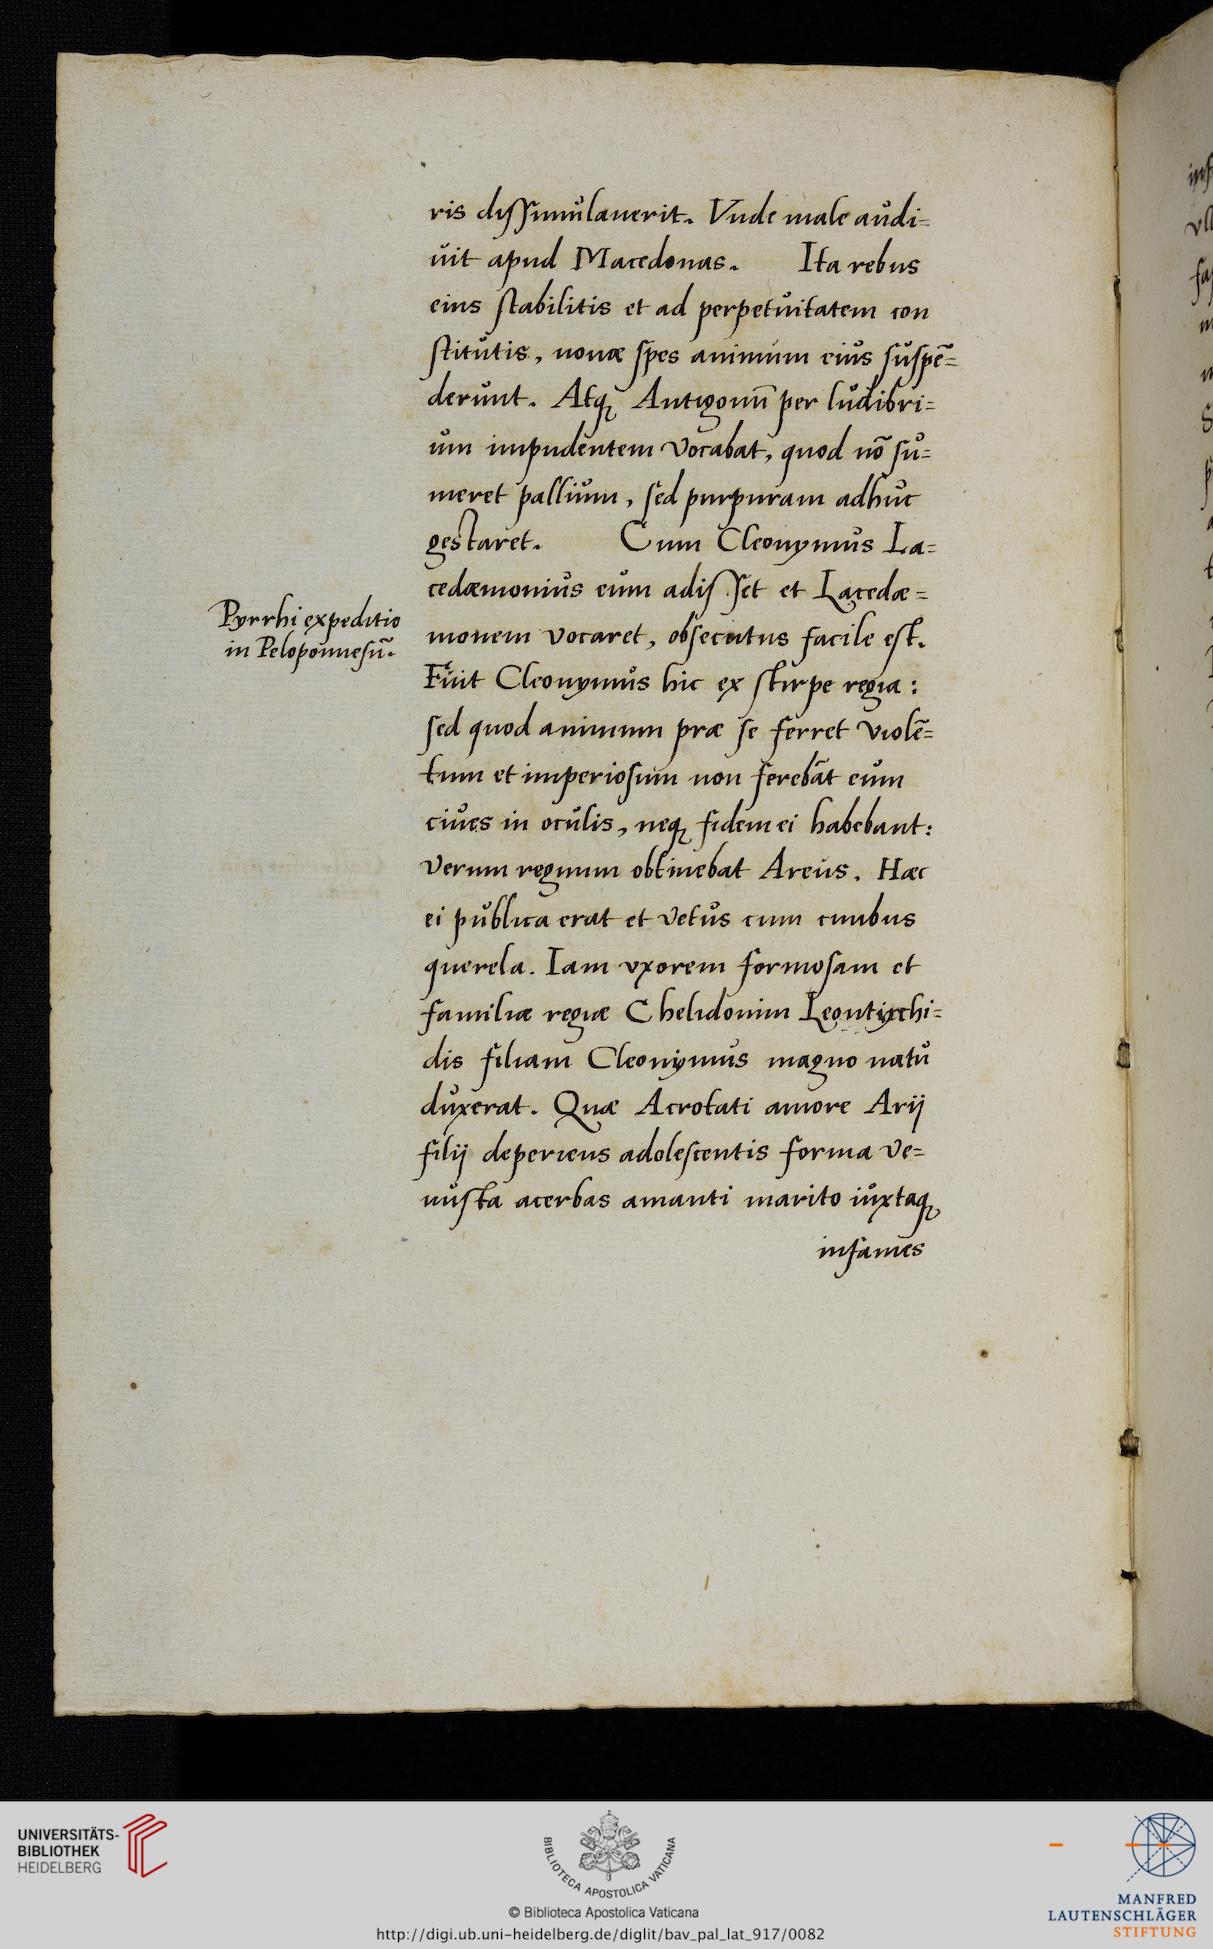 ris dissimulauerit. Vnde male audi=
uit apud Macedonas. Ita rebus
eius stabilitis et ad perpetuitatem con
stitutis, nouæ spes animum eius suspē=
derunt. Atq̨ Antigonū per ludibri=
um impudentem vocabat, quod nō su=
meret pallium, sed purpuram adhuc
gestaret. Cum Cleonymus La=
cedæmonius eum adisset et Lacedæ=
Pyrrhi expeditio
in Peloponnesū.
monem vocaret, obsecutus facile est.
Fuit Cleonymus hic ex stirpe regia:
sed quod animum præ se ferret violē=
tum et imperiosum non ferebāt eum
ciues in oculis, neq̨ fidem ei habebant:
verum regnum obtinebat Areus. Hæc
ei publica erat et vetus cum ciuibus
querela. Iam vxorem formosam et
familiæ regiæ Chelidonim Leontychi=
dis filiam Cleonymus magno natu
duxerat. Quæ Acrotati amore Arij
filij deperiens adolescentis forma ve=
nusta acerbas amanti marito iuxtaq̨
infames
UNIVERSITÄTS-
BIBLIOTHEK
HEIDELBERG
BIBLIOTECA APOSTOLICA VATICANA
© Biblioteca Apostolica Vaticana
http://digi.ub.uni-heidelberg.de/diglit/bav_pal_lat_917/0082
MANFRED
LAUTENSCHLÄGER
STIFTUNG